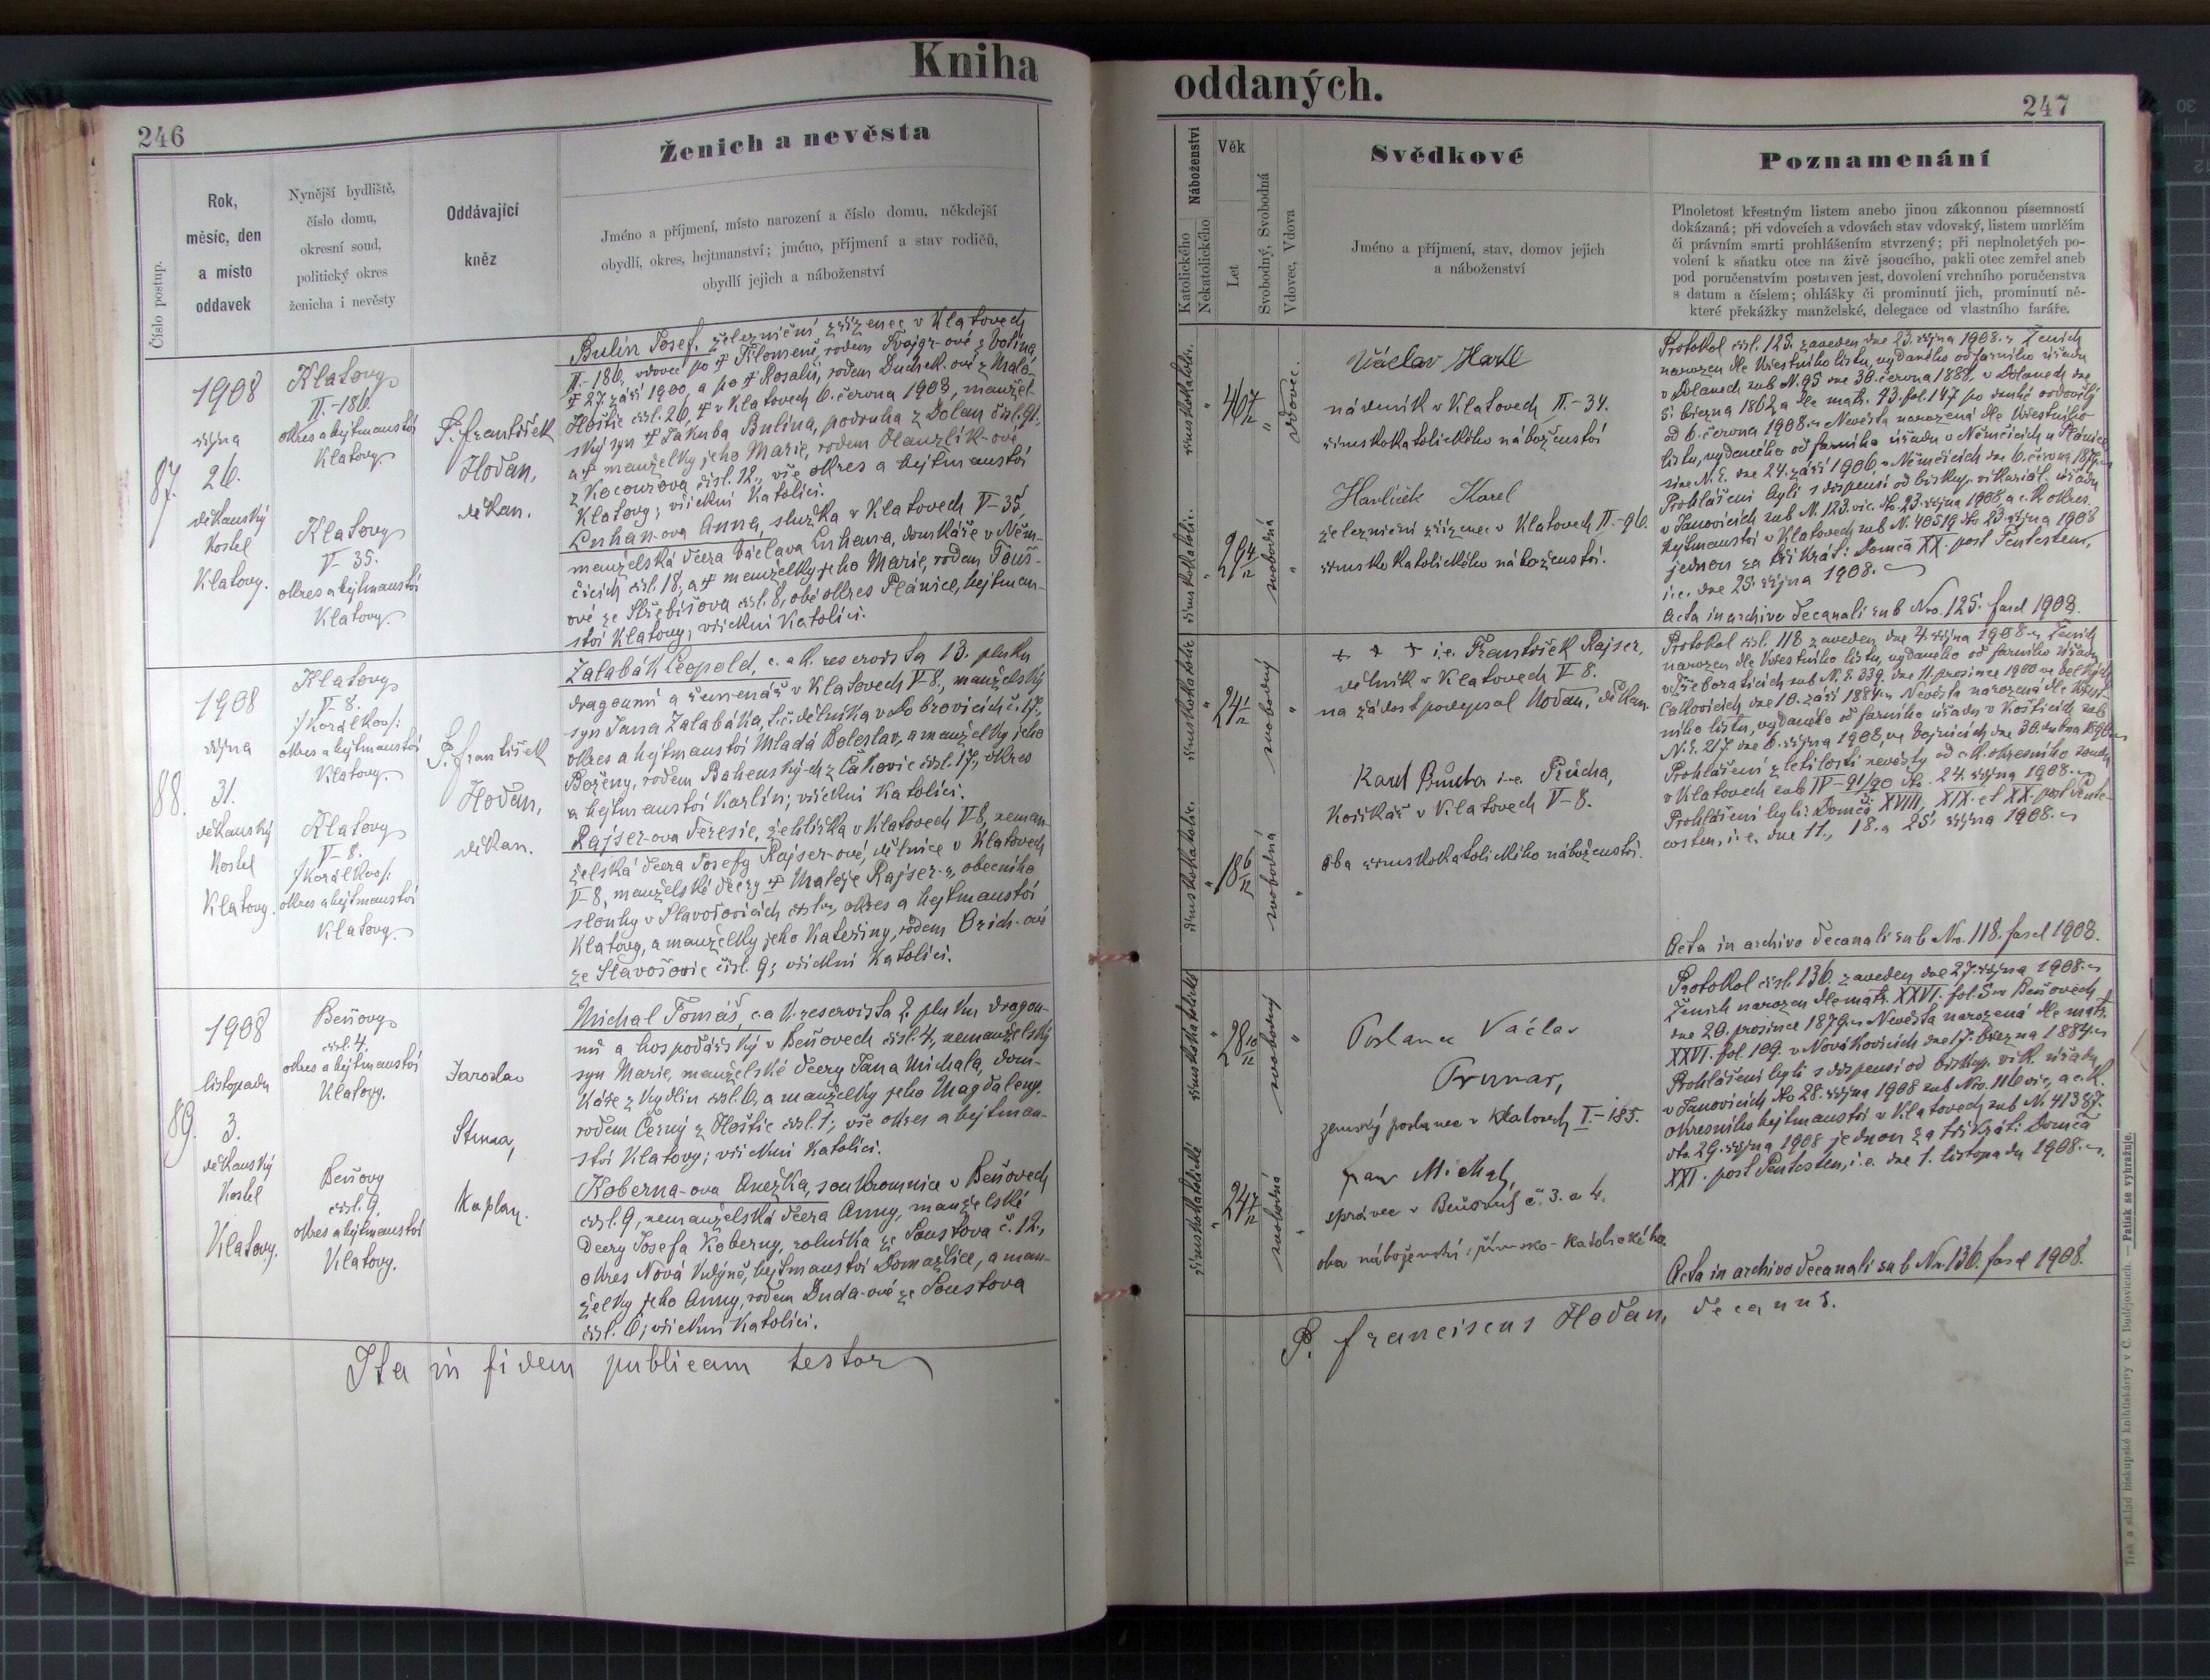 Kniha
246
Číslo postup.
Rok,
měsíc, den
a místo
oddavek
Nynější bydliště,
číslo domu,
okresní soud,
politický okres
ženicha i nevěsty
Oddávající
kněz
Ženich a nevěsta
Jméno a příjmení, místo narození a číslo domu, někdejší
obydlí, okres, hejtmanství; jméno, příjmení a stav rodičů,
obydlí jejich a náboženství
87.
1908
října
26.
děkanský
kostel
Klatovy.
Klatovy
II.-186.
okres a hejtmanství
Klatovy.
Klatovy
V-35.
okres a hejtmanství
Klatovy.
P. František
Hoďan,
děkan.
Bulín Josef, železniční zřízenec v Klatovech
II.-186, vdovec po † Filomeně, rodem Švajgr-ové z Volína
† 27. září 1900, a po † Rosalii, rodem Duchek-ové z Malo-
Hoštic čísl. 26, † v Klatovech 6. června 1908, manžel-
ský syn † Jakuba Bulína, podruha z Dolan čísl. 91.,
a † manželky jeho Marie, rodem Hanzlík-ové
z Kocourova čísl. 12., vše okres a hejtmanství
Klatovy; všickni katolíci.
Luhan-ova Anna, služka v Klatovech V-35,
manželská dcera Václava Luhana, domkáře v Něm-
čicích čísl. 18, a † manželky jeho Marie, rodem Touš-
ové ze Střebišova čísl. 8, obé okres Plánice, hejtman-
ství Klatovy; všickni katolíci.
88.
1908
října
31.
děkanský
kostel
Klatovy.
Klatovy
V-8.
/:Korálkov:/
okres a hejtmanství
Klatovy.
Klatovy
V-8.
/:Korálkov:/
okres a hejtmanství
Klatovy.
P. František
Hoďan,
děkan.
Zalabák Leopold, c. a k. reservista 13. pluku
dragounů a řemenář v Klatovech V-8., manželský
syn Jana Zalabáka, t.č. dělníka v Dobrovicích č. 17.
okres a hejtmanství Mladá Boleslav, a manželky jeho
Boženy, rodem Bahenský-ch z Čakovic čísl. 17., okres
a hejtmanství Karlín; všickni katolíci.
Rajser-ova Terezie, žehlířka v Klatovech V-8, neman-
želská dcera Josefy Rajser-ové, dělnice v Klatovech
V-8, manželské dcery † Matěje Rajser-a, obecního
slouhy v Slavošovicích, okres a hejtmanství
Klatovy, a manželky jeho Kateřiny, rodem
ze Slavošovic čísl. 9; všickni katolíci.
89.
1908
listopadu
3.
děkanský
kostel
Klatovy.
Beňovy
čísl. 4.
okres a hejtmanství
Klatovy.
Beňovy
čísl. 9.
okres a hejtmanství
Klatovy.
Jaroslav
Strnad,
kaplan.
Michal Tomáš, c. a k. reservista 2. pluku dragou-
nů a hospodářský v Beňovech čísl. 4, nemanželský
syn Marie, manželské dcery Jana Michala, dom-
káře z Kydlin čísl. 6, a manželky jeho Magdaleny,
rodem Černý z Hoštic čísl. 1; vše okres a hejtman-
ství Klatovy; všickni katolíci.
Koberna-ova Anežka, soukromnice v Beňovech
čísl. 9, nemanželská dcera Anny, manželské
dcery Josefa Koberny, rolníka ze Soustova č. 12.,
okres Nová Kdýně, hejtmanství Domažlice, a man-
želky jeho Anny, rodem Duda-ové ze Soustova
čísl. 6; všickni katolíci.
Ita in fidem publicam testor
oddaných.
247
Náboženství
Katolického
Nekatolického
Věk
Let
Svobodný, Svobodná
Vdovec, Vdova
Svědkové
Jméno a příjmení, stav, domov jejich
a náboženství
Poznamenání
Plnoletost křestným listem anebo jinou zákonnou písemností
dokázaná; při vdovcích a vdovách stav vdovský, listem umrlčím
či právním smrti prohlášením stvrzený; při neplnoletých po-
volení k sňatku otce na živě jsoucího, pakli otec zemřel aneb
pod poručenstvím postaven jest, dovolení vrchního poručenstva
s datum a číslem; ohlášky či prominutí jich, prominutí ně-
které překážky manželské, delegace od vlastního faráře.
římskokatolic.
"
46 7/12
"
vdovec.
římskokatolic.
"
29 4/12
svobodná
"
Václav Hartl
návduník v Klatovech II.-34.
římskokatolického náboženství
Havlíček Karel
železniční zřízenec v Klatovech II.-96.
římskokatolického náboženství.
Protokol čísl. 125. zaveden dne 23. října 1908. Ženich
narozen dle křestního listu, vydaného od farního úřadu
v Dolanech sub N. 95 dne 30. června 1888, v Dolanech dne
5. března 1862, a dle matr. 43. fol. 147 po druhé ovdovělý
od 6. června 1908. Nevěsta narozena dle křestního
listu, vydaného od farního úřadu v Němčicích u Plánice
sine N. E. dne 24. září 1906, v Němčicích dne 6. června 1879.
Prohlášeni byli s dispensí od biskup. vikariát. úřadu
v Janovicích sub N. 123. vic. dto 23. října 1908 a c. k. okres.
hejtmanství v Klatovech sub N. 40519 dto 23. října 1908
jednou za třikrát: Domca XX. post Pentecosten,
i.e. dne 25. října 1908.
Acta in archivo decanali sub Nro. 125. fascl 1908.
římskokatolic
"
24 1/12
svobodný
"
římskokatolic.
"
18 6/12
svobodná
"
+ + + i.e. František Rajser,
dělník v Klatovech V-8.
na žádost podepsal Hoďan, děkan.
Karel Průcha i.e. Průcha,
kočkář v Klatovech V-8.
oba římskokatolického náboženství.
Protokol čísl. 118 zaveden dne 4. října 1908. Ženich
narozen dle křestního listu, vydaného od farního úřadu
v Třeboraticích sub N. E. 339. dne 11. prosince 1900 ve Velkých
Čakovicích dne 10. září 1884. Nevěsta narozena dle křest-
ního listu, vydaného od farního úřadu v Košticích sub
N. E. 217 dne 6. října 1908, ve Vojnicích dne 30. dubna 1890.
Prohlášení zletilosti nevěsty od c. k. okresního soudu
v Klatovech sub IV-91/90 dto. 24. října 1908.
Prohlášeni byli: Domca XVIII, XIX. et XX. post Pente-
costen, i.e. dne 11., 18. a 25. října 1908.
Acta in archivo decanali sub Nro. 118. fascl 1908.
římskokatolické
"
28 10/12
svobodný
"
římskokatolické
"
24 7/12
svobodná
"
Poslanec Václav
Prunar,
zemský poslanec v Klatovech I.-185.
Jan Michal,
správce v Beňovech č. 3. a 4.
oba náboženství římsko-katolického.
Protokol čísl. 136. zaveden dne 27. října 1908.
Ženich narozen dle matr. XXVI. fol. 5 v Beňovech
dne 20. prosince 1879. Nevěsta narozena dle matr.
XXVI. fol. 109. v Novákovicích dne 17. března 1884.
Prohlášeni byli s dispensí od biskup. vik. úřadu
v Janovicích dto 28. října 1908 sub Nro. 116 vic., a c. k.
okresního hejtmanství v Klatovech sub N. 41387.
dto. 29. října 1908 jednou za třikrát: Domca
XXI. post Pentecosten, i.e. dne 1. listopadu 1908.
Acta in archivo decanali sub Nro 136. fascl 1908.
P. Franciscus Hoďan, decanus.
Tisk a sklad biskupské knihtiskárny v Č. Budějovicích. — Patisk se vyhražuje.